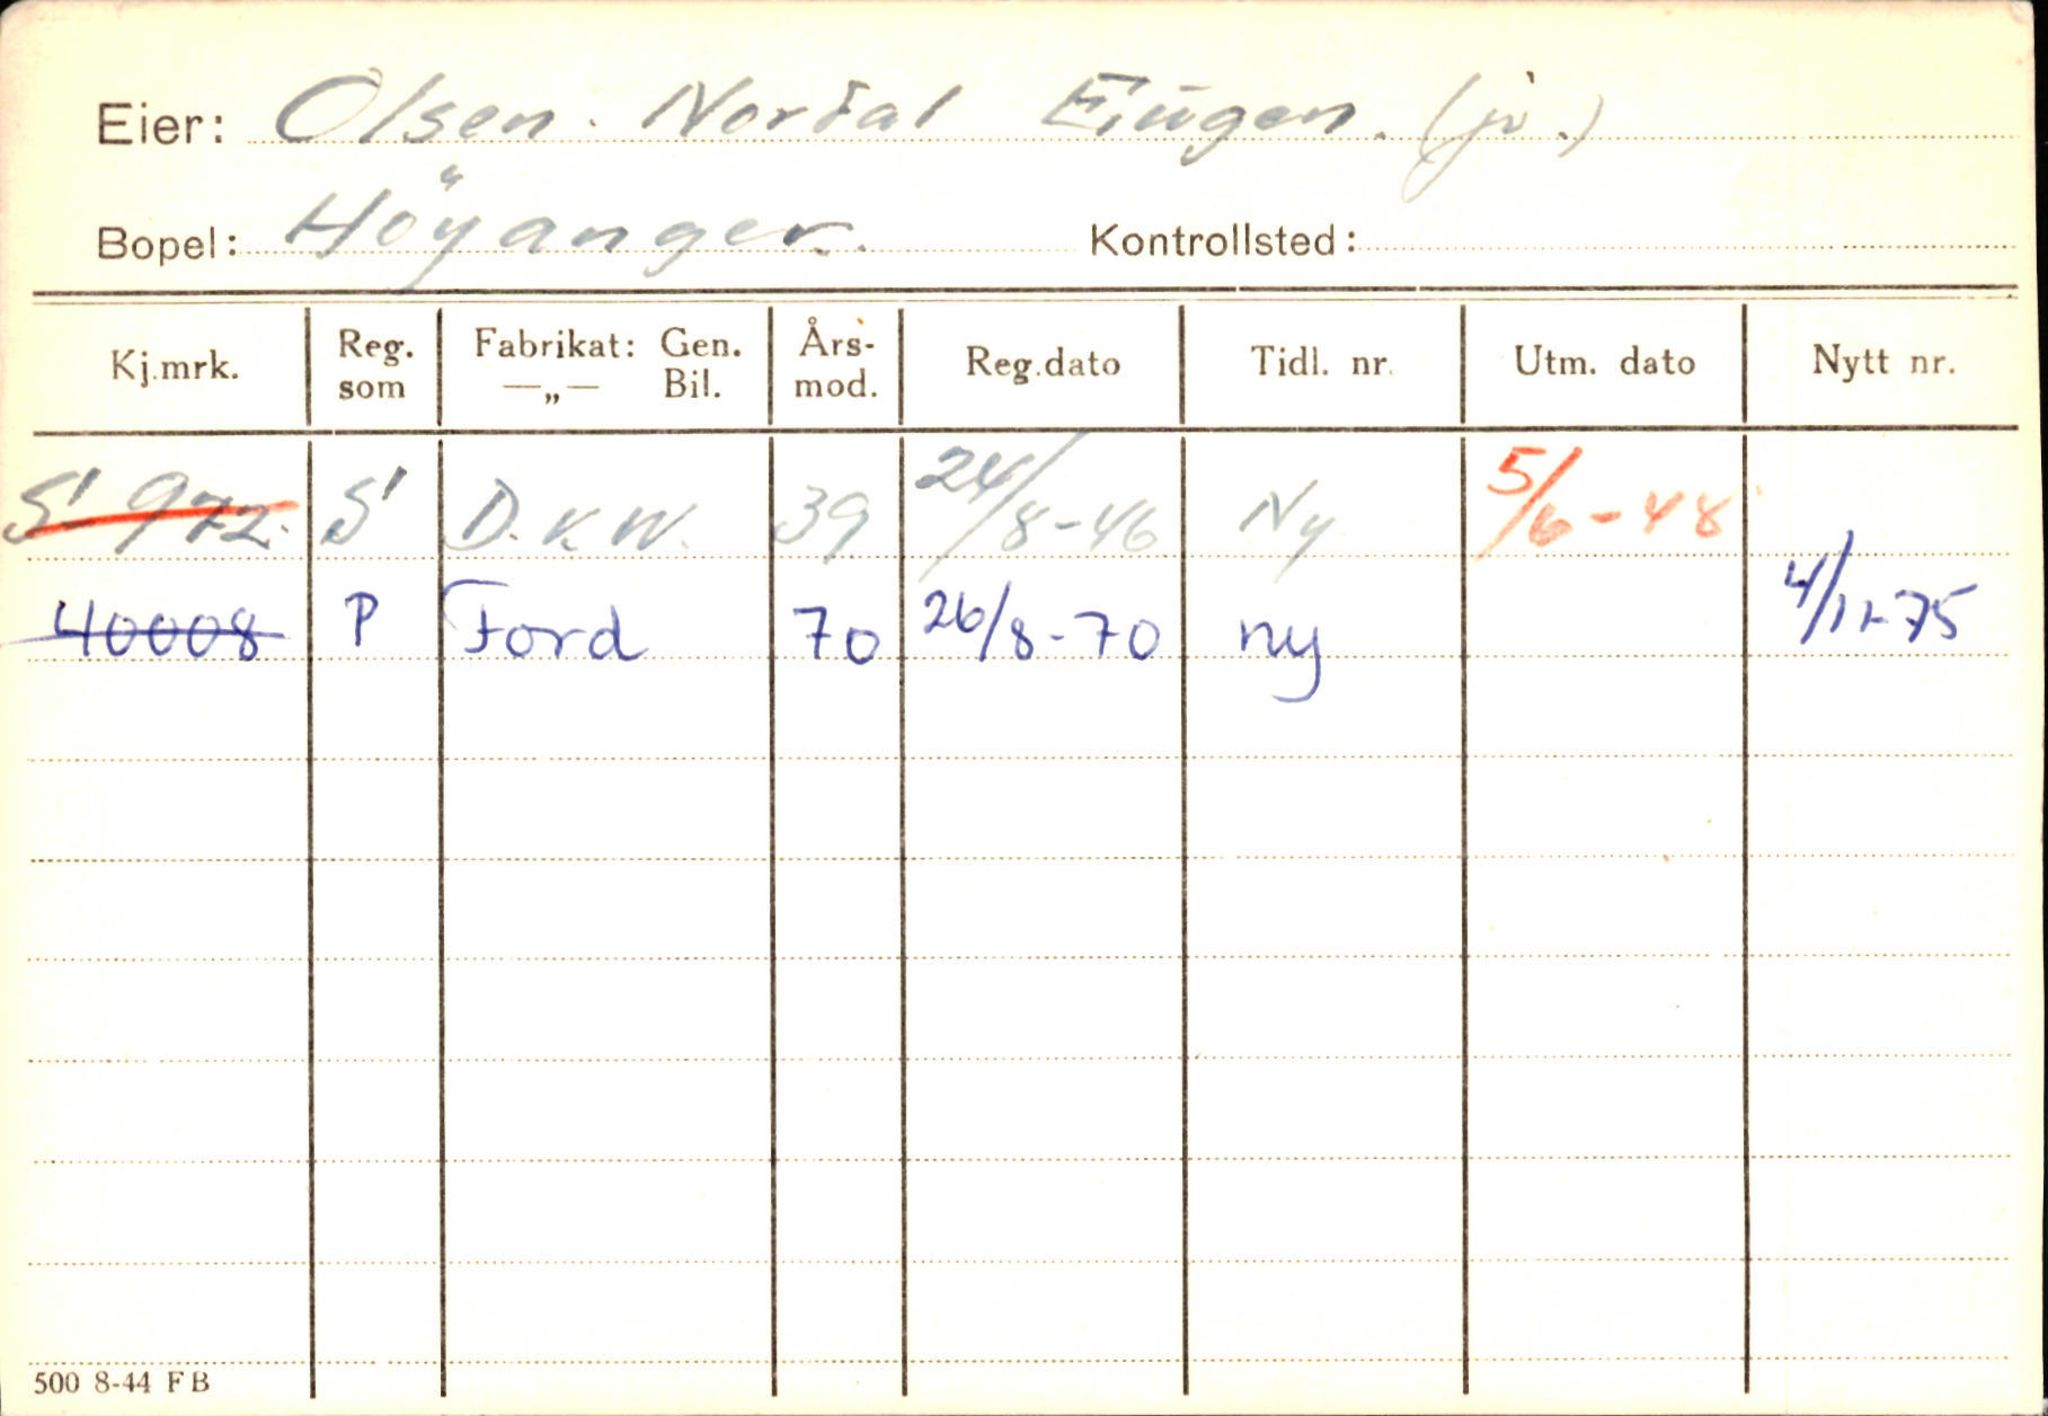 Eier: Olsen. Nordal Eugen. (jr.)
Bopel: Höyanger. Kontrollsted:
Kj.mrk. Reg. som Fabrikat: Gen. —„— Bil. Års- mod. Reg.dato Tidl. nr. Utm. dato Nytt nr.
S 972. S D.K.W. 39 24/8-46 Ny 5/6-48
40008 P Ford 70 26/8-70 ny 4/11-75
500 8-44 FB